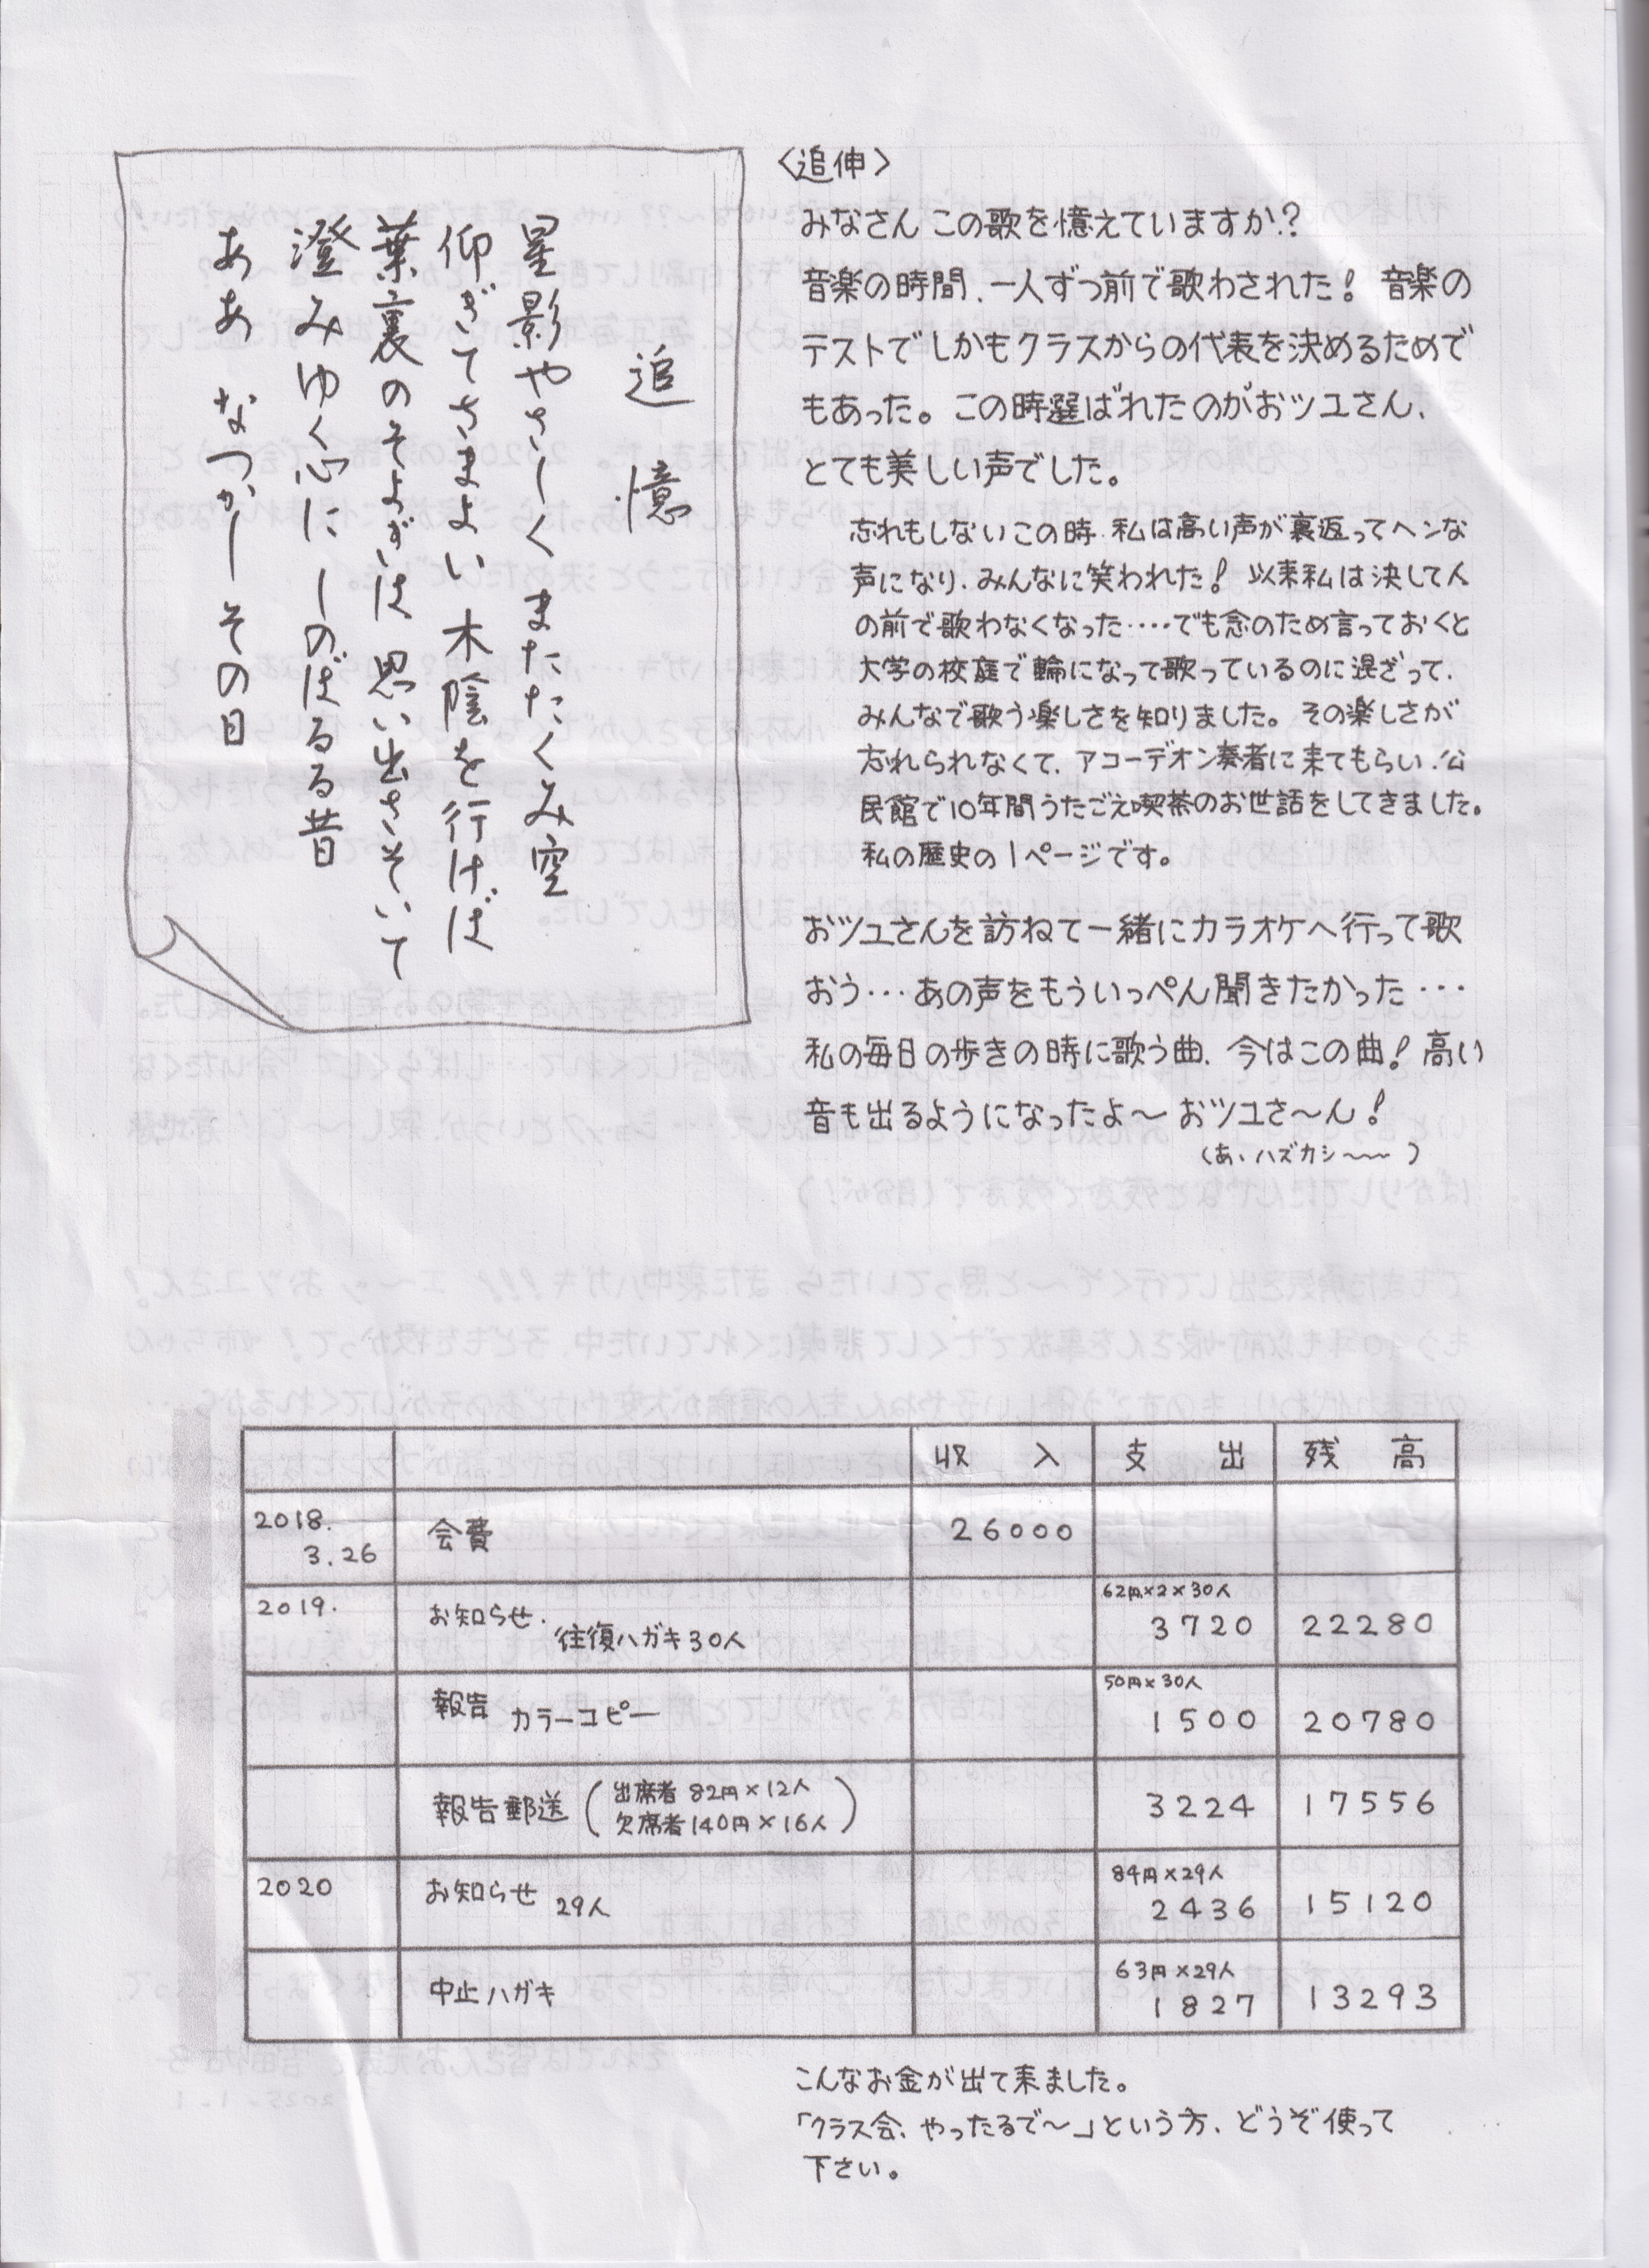 追憶
星影やさしく またたくみ空
仰ぎてさまよい 木陰を行けば
葉裏のそよぎは 思い出さそいて
澄みゆく心に しのばるる昔
ああ なつかし その日
〈追伸〉
みなさん この歌を憶えていますか?
音楽の時間、一人ずつ前で歌わされた! 音楽の
テストでしかもクラスからの代表を決めるためで
もあった。この時選ばれたのがおツユさん、
とても美しい声でした。
忘れもしないこの時、私は高い声が裏返ってヘンな
声になり、みんなに笑われた! 以来私は決して人
の前で歌わなくなった‥‥でも念のため言っておくと
大学の校庭で輪になって歌っているのに混ざって、
みんなで歌う楽しさを知りました。その楽しさが
忘れられなくて、アコーデオン奏者に来てもらい、公
民館で10年間うたごえ喫茶のお世話をしてきました。
私の歴史の1ページです。
おツユさんを訪ねて一緒にカラオケへ行って歌
おう…あの声をもういっぺん聞きたかった…
私の毎日の歩きの時に歌う曲、今はこの曲! 高い
音も出るようになったよ〜 おツユさ〜ん!
(あ、ハズカシ〜〜)
収入 支出 残高
2018.
3.26 会費 26000
2019. お知らせ. 往復ハガキ30人 62円×2×30人
3720 22280
報告 カラーコピー 50円×30人
1500 20780
報告郵送 (出席者 82円×12人
欠席者 140円×16人) 3224 17556
2020 お知らせ 29人 84円×29人
2436 15120
中止ハガキ 63円×29人
1827 13293
こんなお金が出て来ました。
「クラス会、やったるで〜」という方、どうぞ使って
下さい。